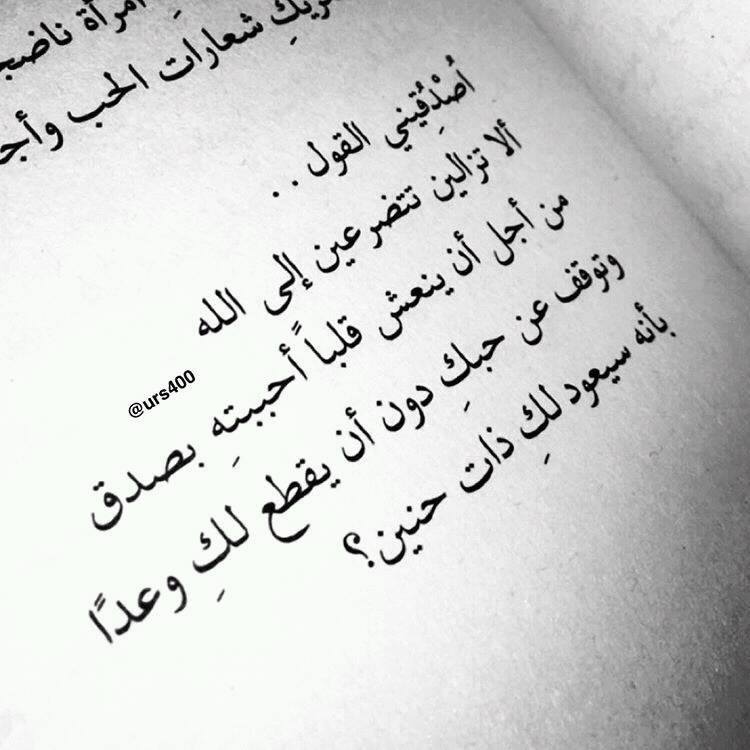 امرأة
شعارات الحب
أصْدِقُيني القول . .
ألا تزالين تتضرعين إلى الله
من أجل أن ينعش قلباً أحببتهِ بصدق
وتوقف عن حبكِ دون أن يقطع لكِ وعدًا
بأنه سيعود لكِ ذات حنين؟
@urs400